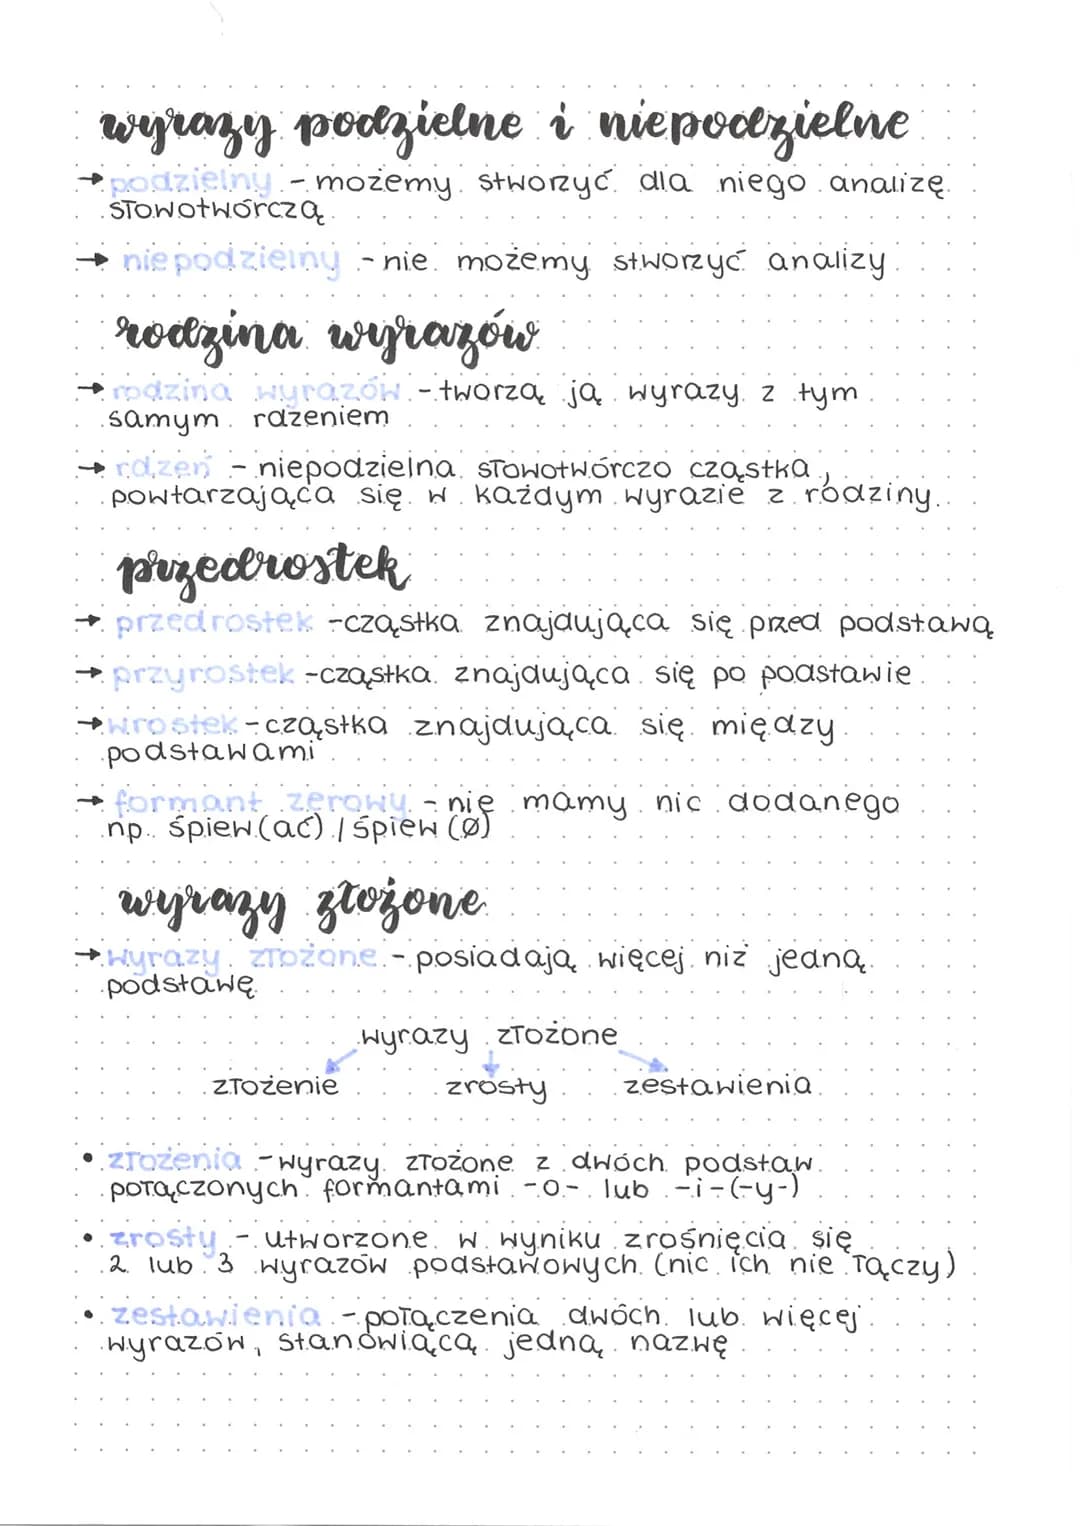 wyrazy podzielne i niepodzielne
→ podzielny - możemy stworzyć dla niego analizę
słowotwórczą
→ niepodzielny - nie możemy stworzyć analizy
rodzina wyrazów
→ rodzina wyrazów - tworzą ją wyrazy z tym
samym rdzeniem
→ rdzeń - niepodzielna słowotwórczo cząstka,
powtarzająca się w każdym wyrazie z rodziny.
przedrostek
→ przedrostek - cząstka znajdująca się przed podstawą
→ przyrostek - cząstka znajdująca się po podstawie
→ wrostek - cząstka znajdująca się między
podstawami
→ formant zerowy - nie mamy nic dodanego
np. śpiew(ać) / śpiew (Ø)
wyrazy złożone
→ wyrazy złożone - posiadają więcej niż jedną
podstawę
wyrazy złożone
złożenie zrosty zestawienia
• złożenia - wyrazy złożone z dwóch podstaw
połączonych formantami -o- lub -i-(-y-)
• zrosty - utworzone w wyniku zrośnięcia się
2 lub 3 wyrazów podstawowych (nic ich nie łączy)
• zestawienia - połączenia dwóch lub więcej
wyrazów, stanowiącą jedną nazwę